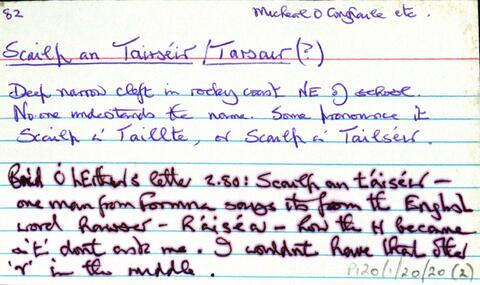 82 Micheal O Conghaile etc.
Scailp an Tairséir / Tarsaur (?)
Deep narrow cleft in rocky coast NE of school.
No one understands the name. Some pronounce it
Scailp a' Taillte, or Scailp a' Tailséir.
letter 2.80: Scailp an táiséir –
one man from Formna says its from the English
word hawser – Ráiséar – how the H became
a 't' dont ask me. I couldnt hear that other
'r' in the middle.
P120/1/20/20 (2)